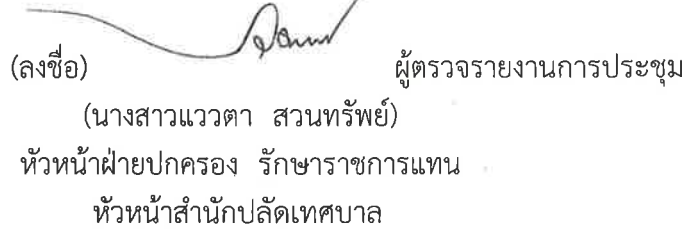 (ลงชื่อ) ผู้ตรวจรายงานการประชุม
(นางสาวแววตา สวนทรัพย์)
หัวหน้าฝ่ายปกครอง รักษาราชการแทน
หัวหน้าสำนักปลัดเทศบาล